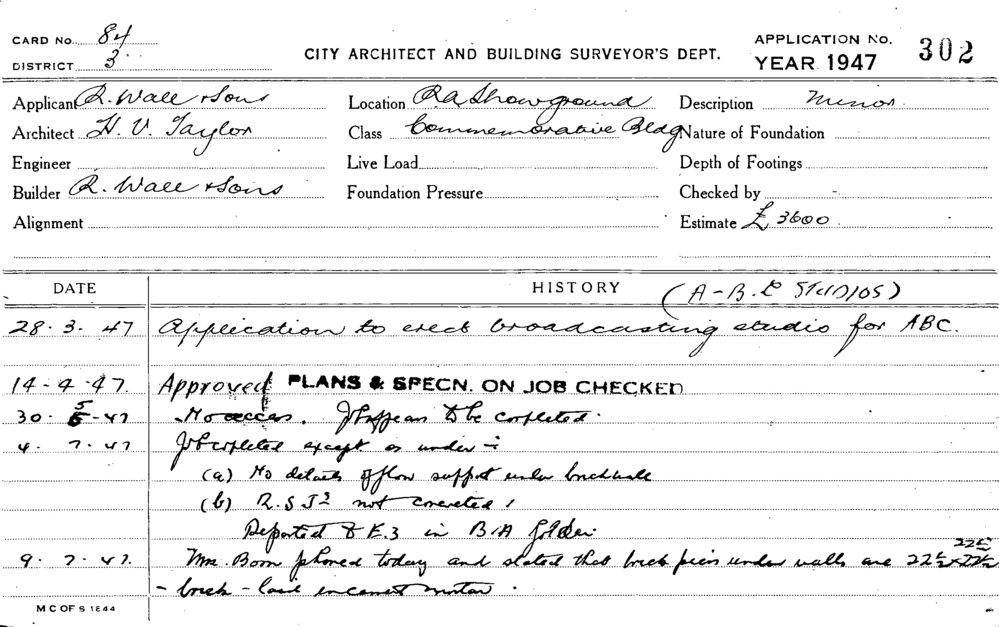 CARD No. 84
DISTRICT 3
CITY ARCHITECT AND BUILDING SURVEYOR'S DEPT.
APPLICATION No. 302
YEAR 1947
Applicant R. Wall & Sons Location RA Showground Description Minor
Architect H. V. Taylor Class Commemorative Bldg Nature of Foundation
Engineer Live Load Depth of Footings
Builder R. Wall & Sons Foundation Pressure Checked by -
Alignment Estimate £ 3600
DATE HISTORY (A-B.C STUDIOS)
28. 3. 47 Application to erect broadcasting studio for ABC.
14-4-47. Approved PLANS & SPECN. ON JOB CHECKED
30. 5-47 No access. Job appears to be completed.
4. 7. 47 Job completed except as under :-
(a) No details of floor support under brick walls
(b) R.S.Js not concreted
Reported to E.3 in B.A folder.
9. 7. 47. Mr. Boon phoned today and stated that brick piers under walls are 22½ x 22½
- brick - laid in cement mortar.
M C OF S 1844